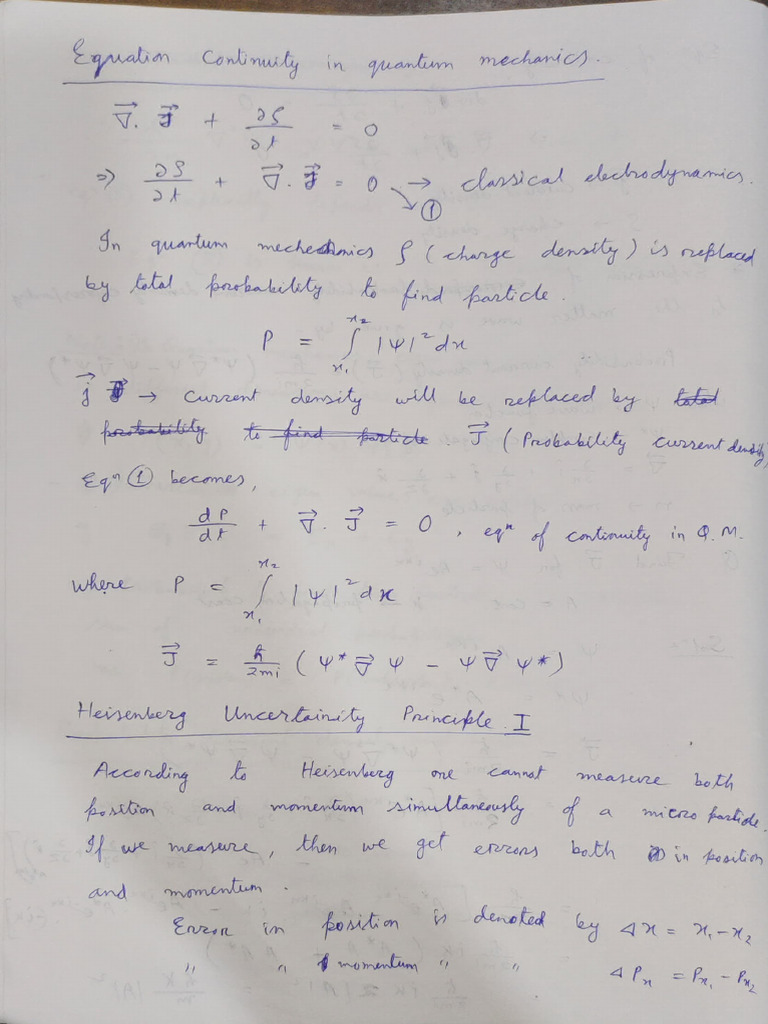 Equation Continuity in quantum mechanics.
∇⃗. J⃗ + ∂ρ/∂t = 0
⇒ ∂ρ/∂t + ∇⃗. J⃗ = 0 → classical electrodynamics.
①
In quantum mechanics ρ (charge density) is replaced
by total probability to find particle.
P = ∫_{x₁}^{x₂} |ψ|² dx
j⃗ → current density will be replaced by total
probability to find particle. J⃗ (Probability current density)
Eqⁿ ① becomes,
dP/dt + ∇⃗. J⃗ = 0, eqⁿ of continuity in Q.M.
where P = ∫_{x₁}^{x₂} |ψ|² dx
J⃗ = ℏ/2mi (ψ* ∇⃗ ψ - ψ ∇⃗ ψ*)
Heisenberg Uncertainity Principle I
According to Heisenberg one cannot measure both
position and momentum simultaneously of a micro particle.
If we measure, then we get errors both in position
and momentum.
Error in position is denoted by Δx = x₁-x₂
" " momentum " " ΔPx = Px₁ - Px₂